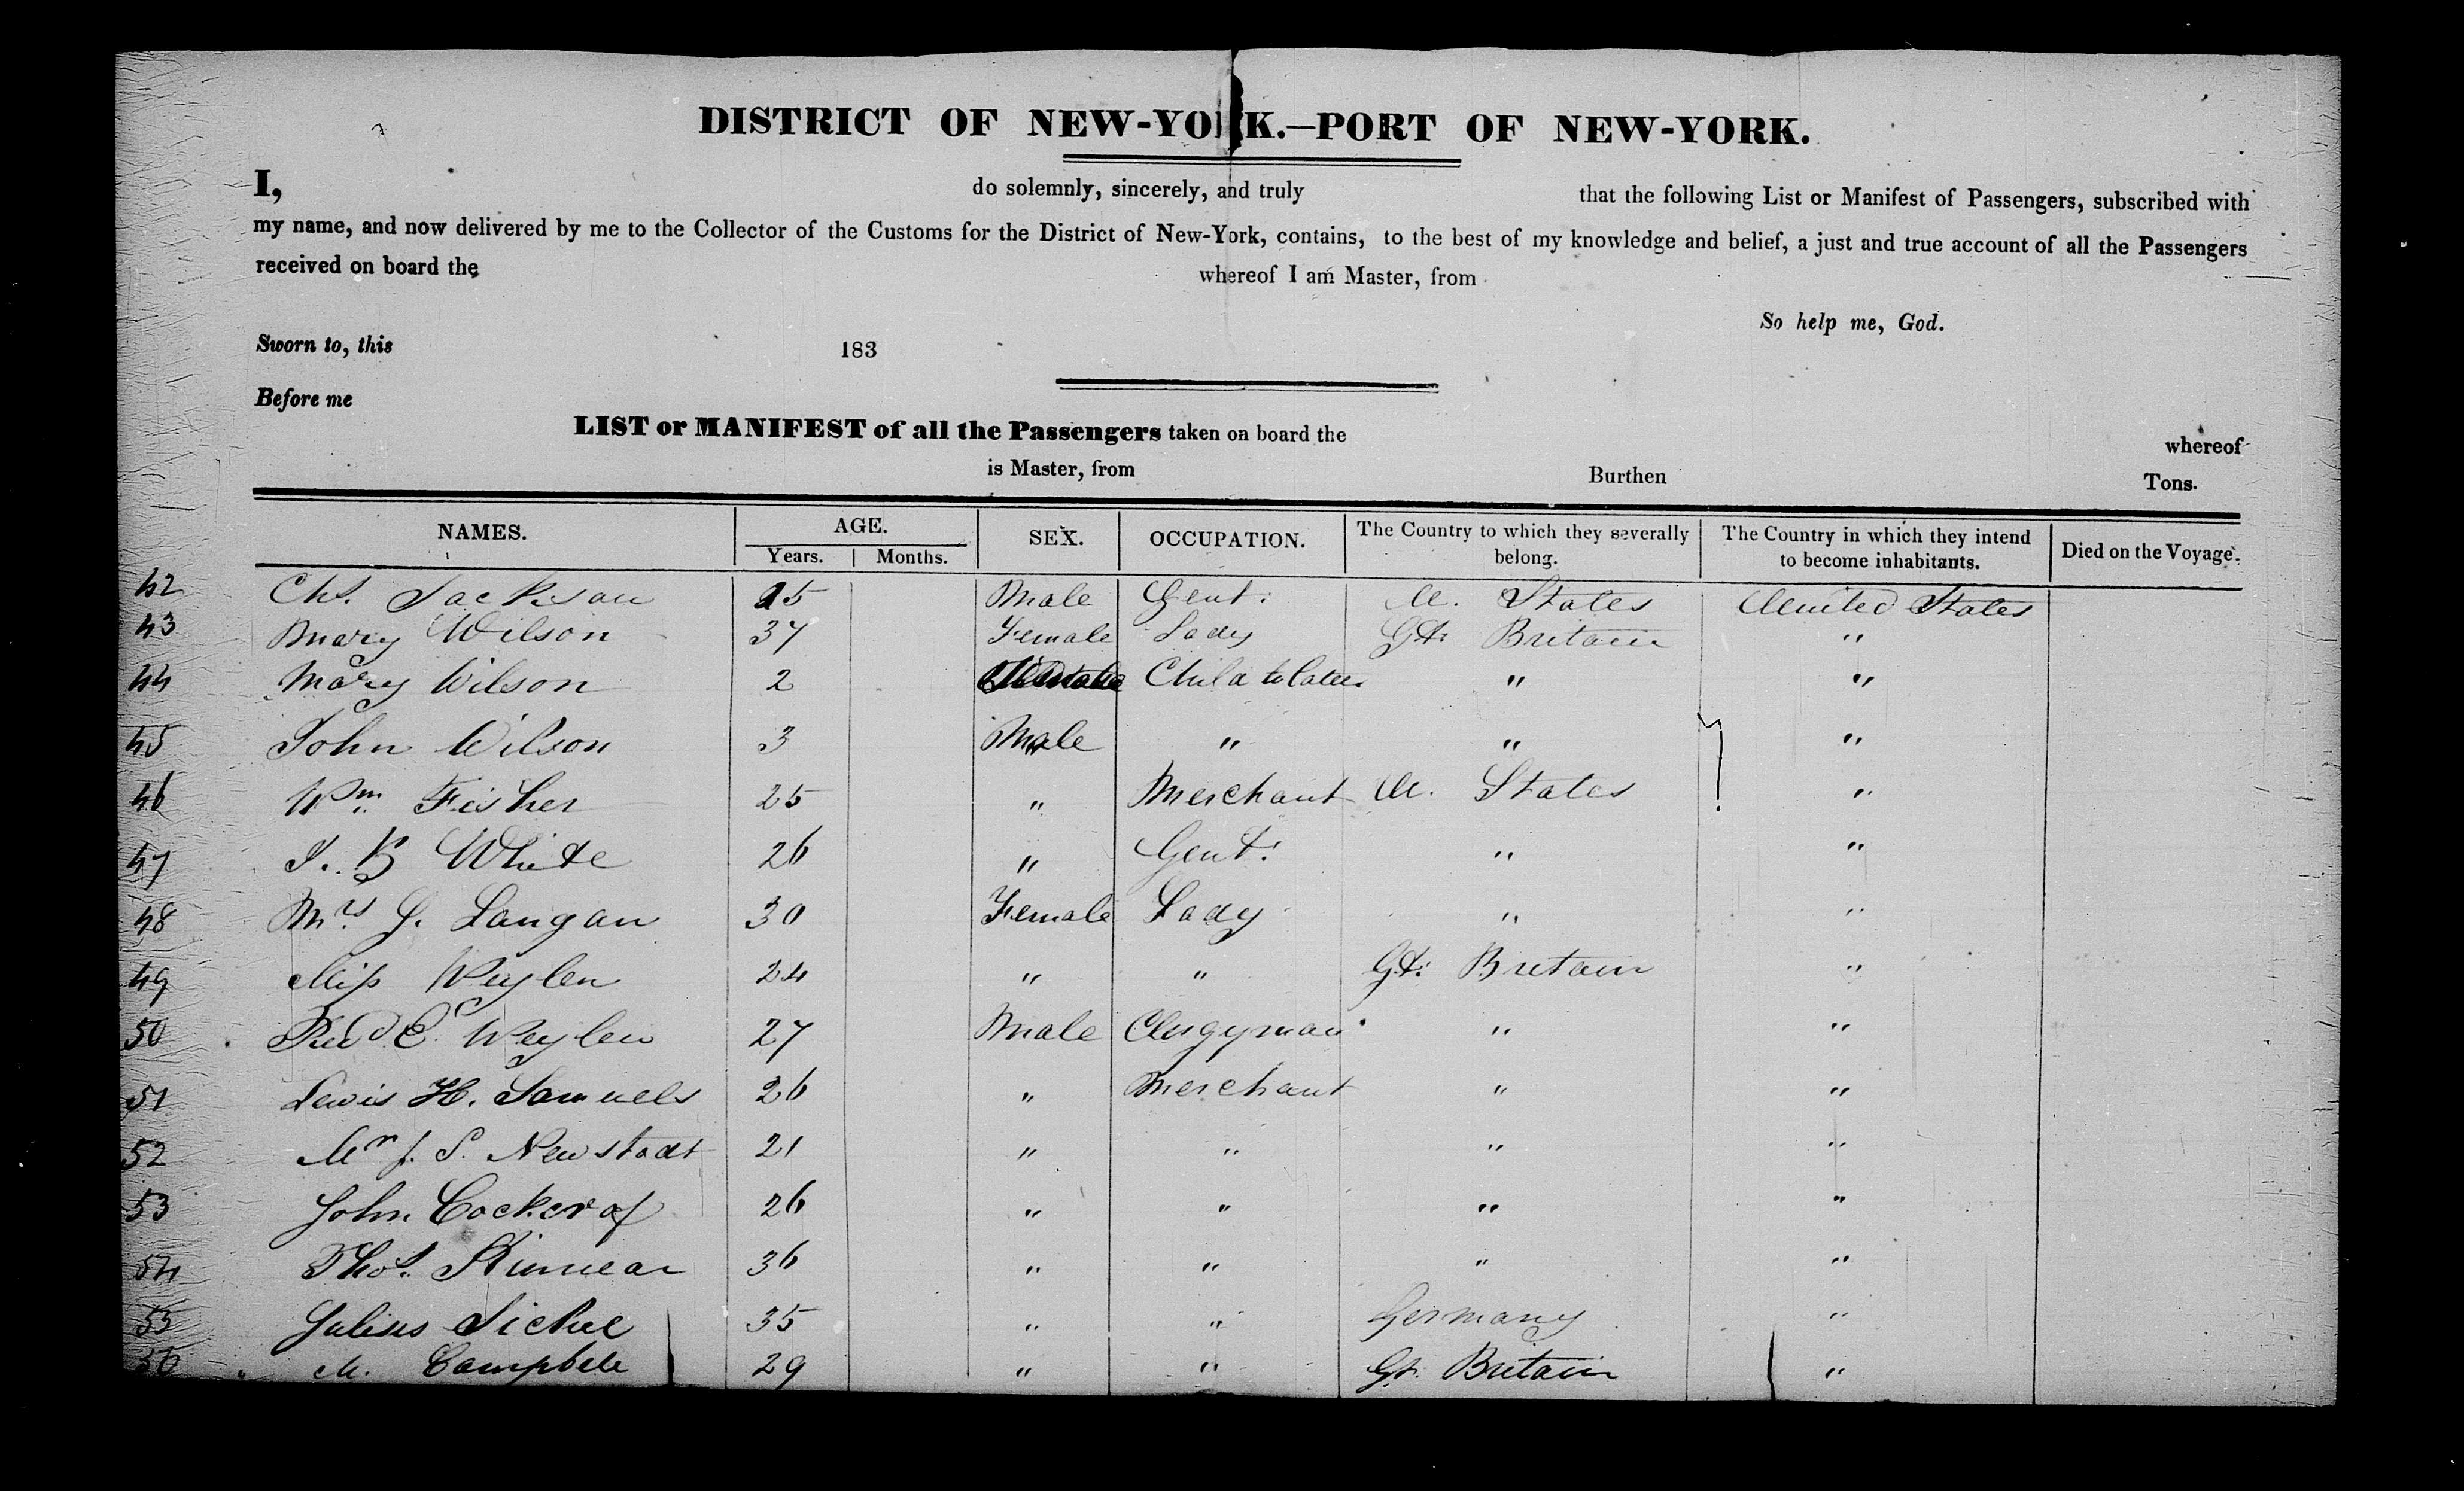 DISTRICT OF NEW-YORK.—PORT OF NEW-YORK.
I, do solemnly, sincerely, and truly that the following List or Manifest of Passengers, subscribed with
my name, and now delivered by me to the Collector of the Customs for the District of New-York, contains, to the best of my knowledge and belief, a just and true account of all the Passengers
received on board the whereof I am Master, from
So help me, God.
Sworn to, this 183
Before me
LIST or MANIFEST of all the Passengers taken on board the whereof
is Master, from Burthen Tons.
NAMES. AGE. SEX. OCCUPATION. The Country to which they severally belong. The Country in which they intend to become inhabitants. Died on the Voyage.
Years. Months.
42 Chs. Jackson 25 Male Gent. U. States United States
43 Mary Wilson 37 Female Lady Gt. Britain "
44 Mary Wilson 2 Child " "
45 John Wilson 3 Male " " "
46 Wm. Fisher 25 " Merchant U. States "
47 J. B White 26 " Gent. " "
48 Mrs. J. Langan 30 Female Lady " "
49 Miss Weylen 24 " " Gt. Britain "
50 Revd. E. Weylen 27 Male Clergyman " "
51 Lewis H. Samuels 26 " Merchant " "
52 Mr J. S. Newstadt 21 " " " "
53 John Cockcrof 26 " " " "
54 Thos. Kinnear 36 " " " "
55 Julius Sichel 35 " " Germany "
56 M. Campbell 29 " " Gt. Britain "